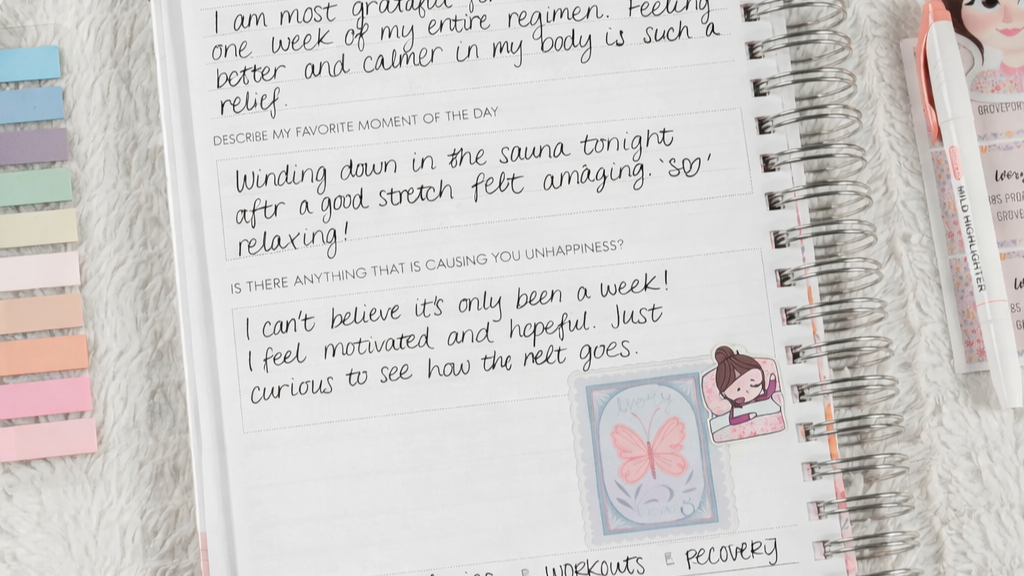 I am most grateful
one week of my entire regimen. Feeling
better and calmer in my body is such a
relief.
DESCRIBE MY FAVORITE MOMENT OF THE DAY
Winding down in the sauna tonight
aftr a good stretch felt amazing. 'so'
relaxing!
IS THERE ANYTHING THAT IS CAUSING YOU UNHAPPINESS?
I can't believe it's only been a week!
I feel motivated and hopeful. Just
curious to see how the nelt goes.
WORKOUTS
RECOVERY
MILD HIGHLIGHTER
GROVEPORT